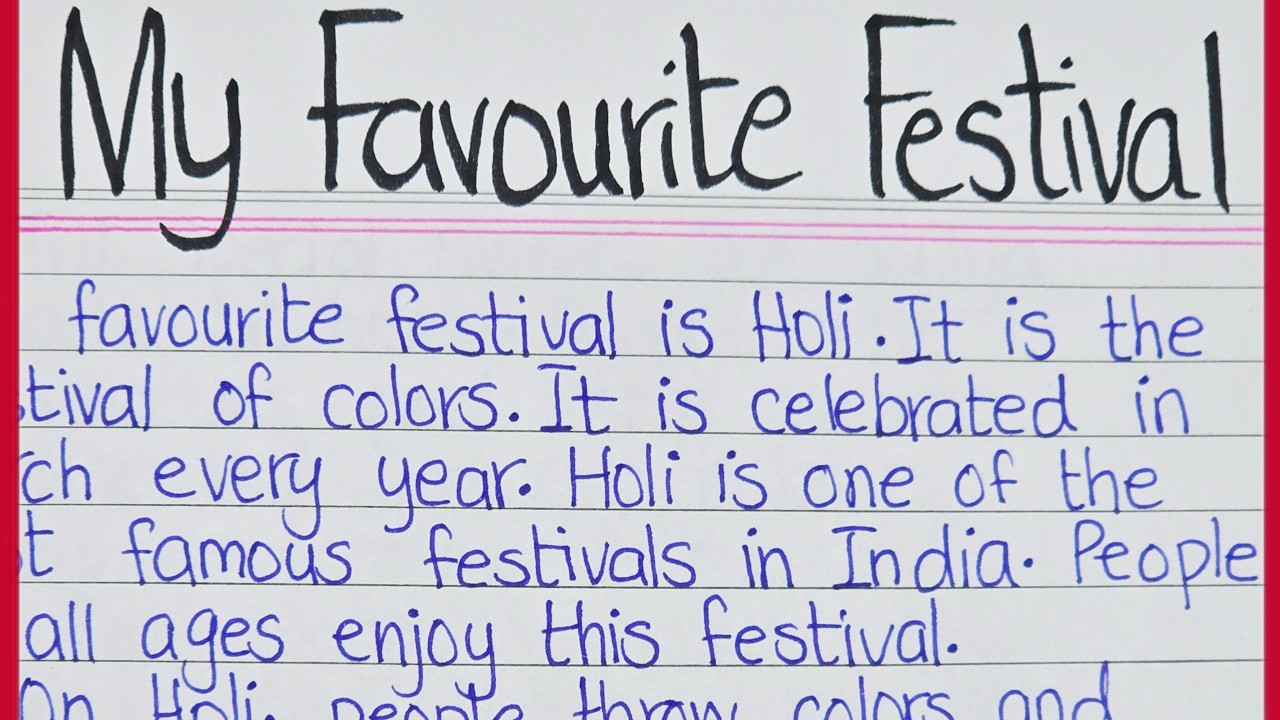 My Favourite Festival
favourite festival is Holi. It is the
tival of colors. It is celebrated in
ch every year. Holi is one of the
t famous festivals in India. People
all ages enjoy this festival.
On Holi, people throw colors and